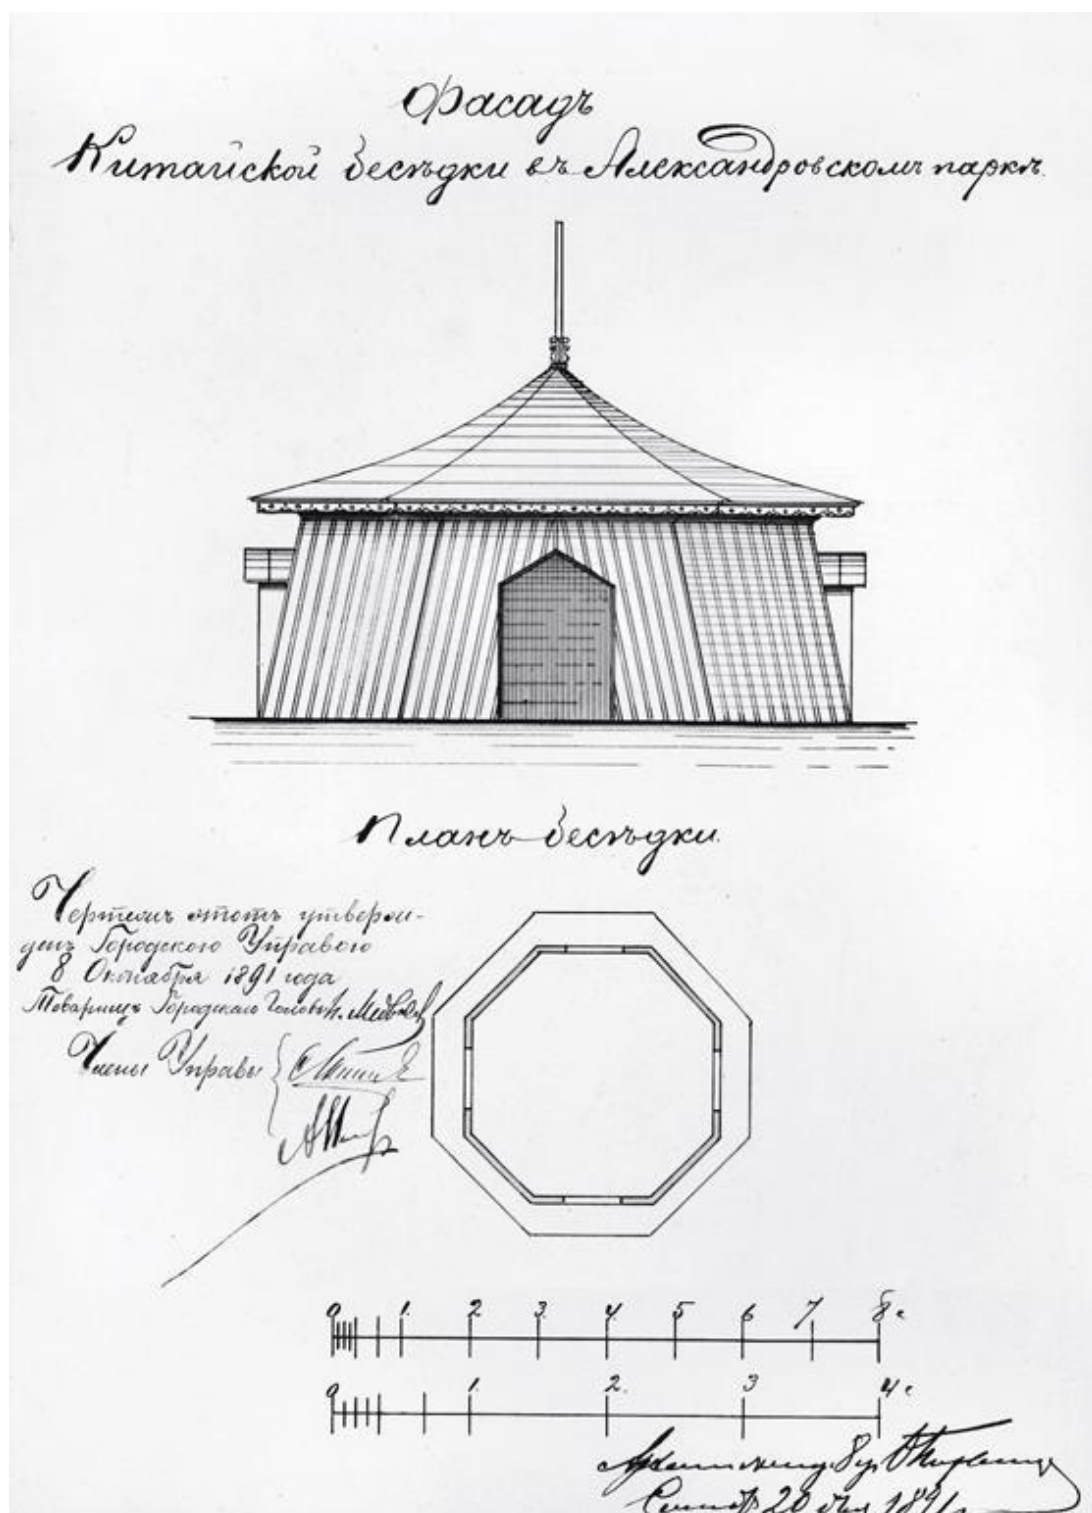 Фасадъ
Китайской бесѣдки въ Александровскомъ паркѣ.
Планъ бесѣдки.
Чертежъ этотъ утверж-
денъ Городскою Управою
8 Октября 1891 года
Товарищъ Городского Головы Н. Медведев
Члены Управы
0 1. 2. 3. 4. 5 6 7. 8 с
0 1. 2. 3 4 с
20 1891 г.